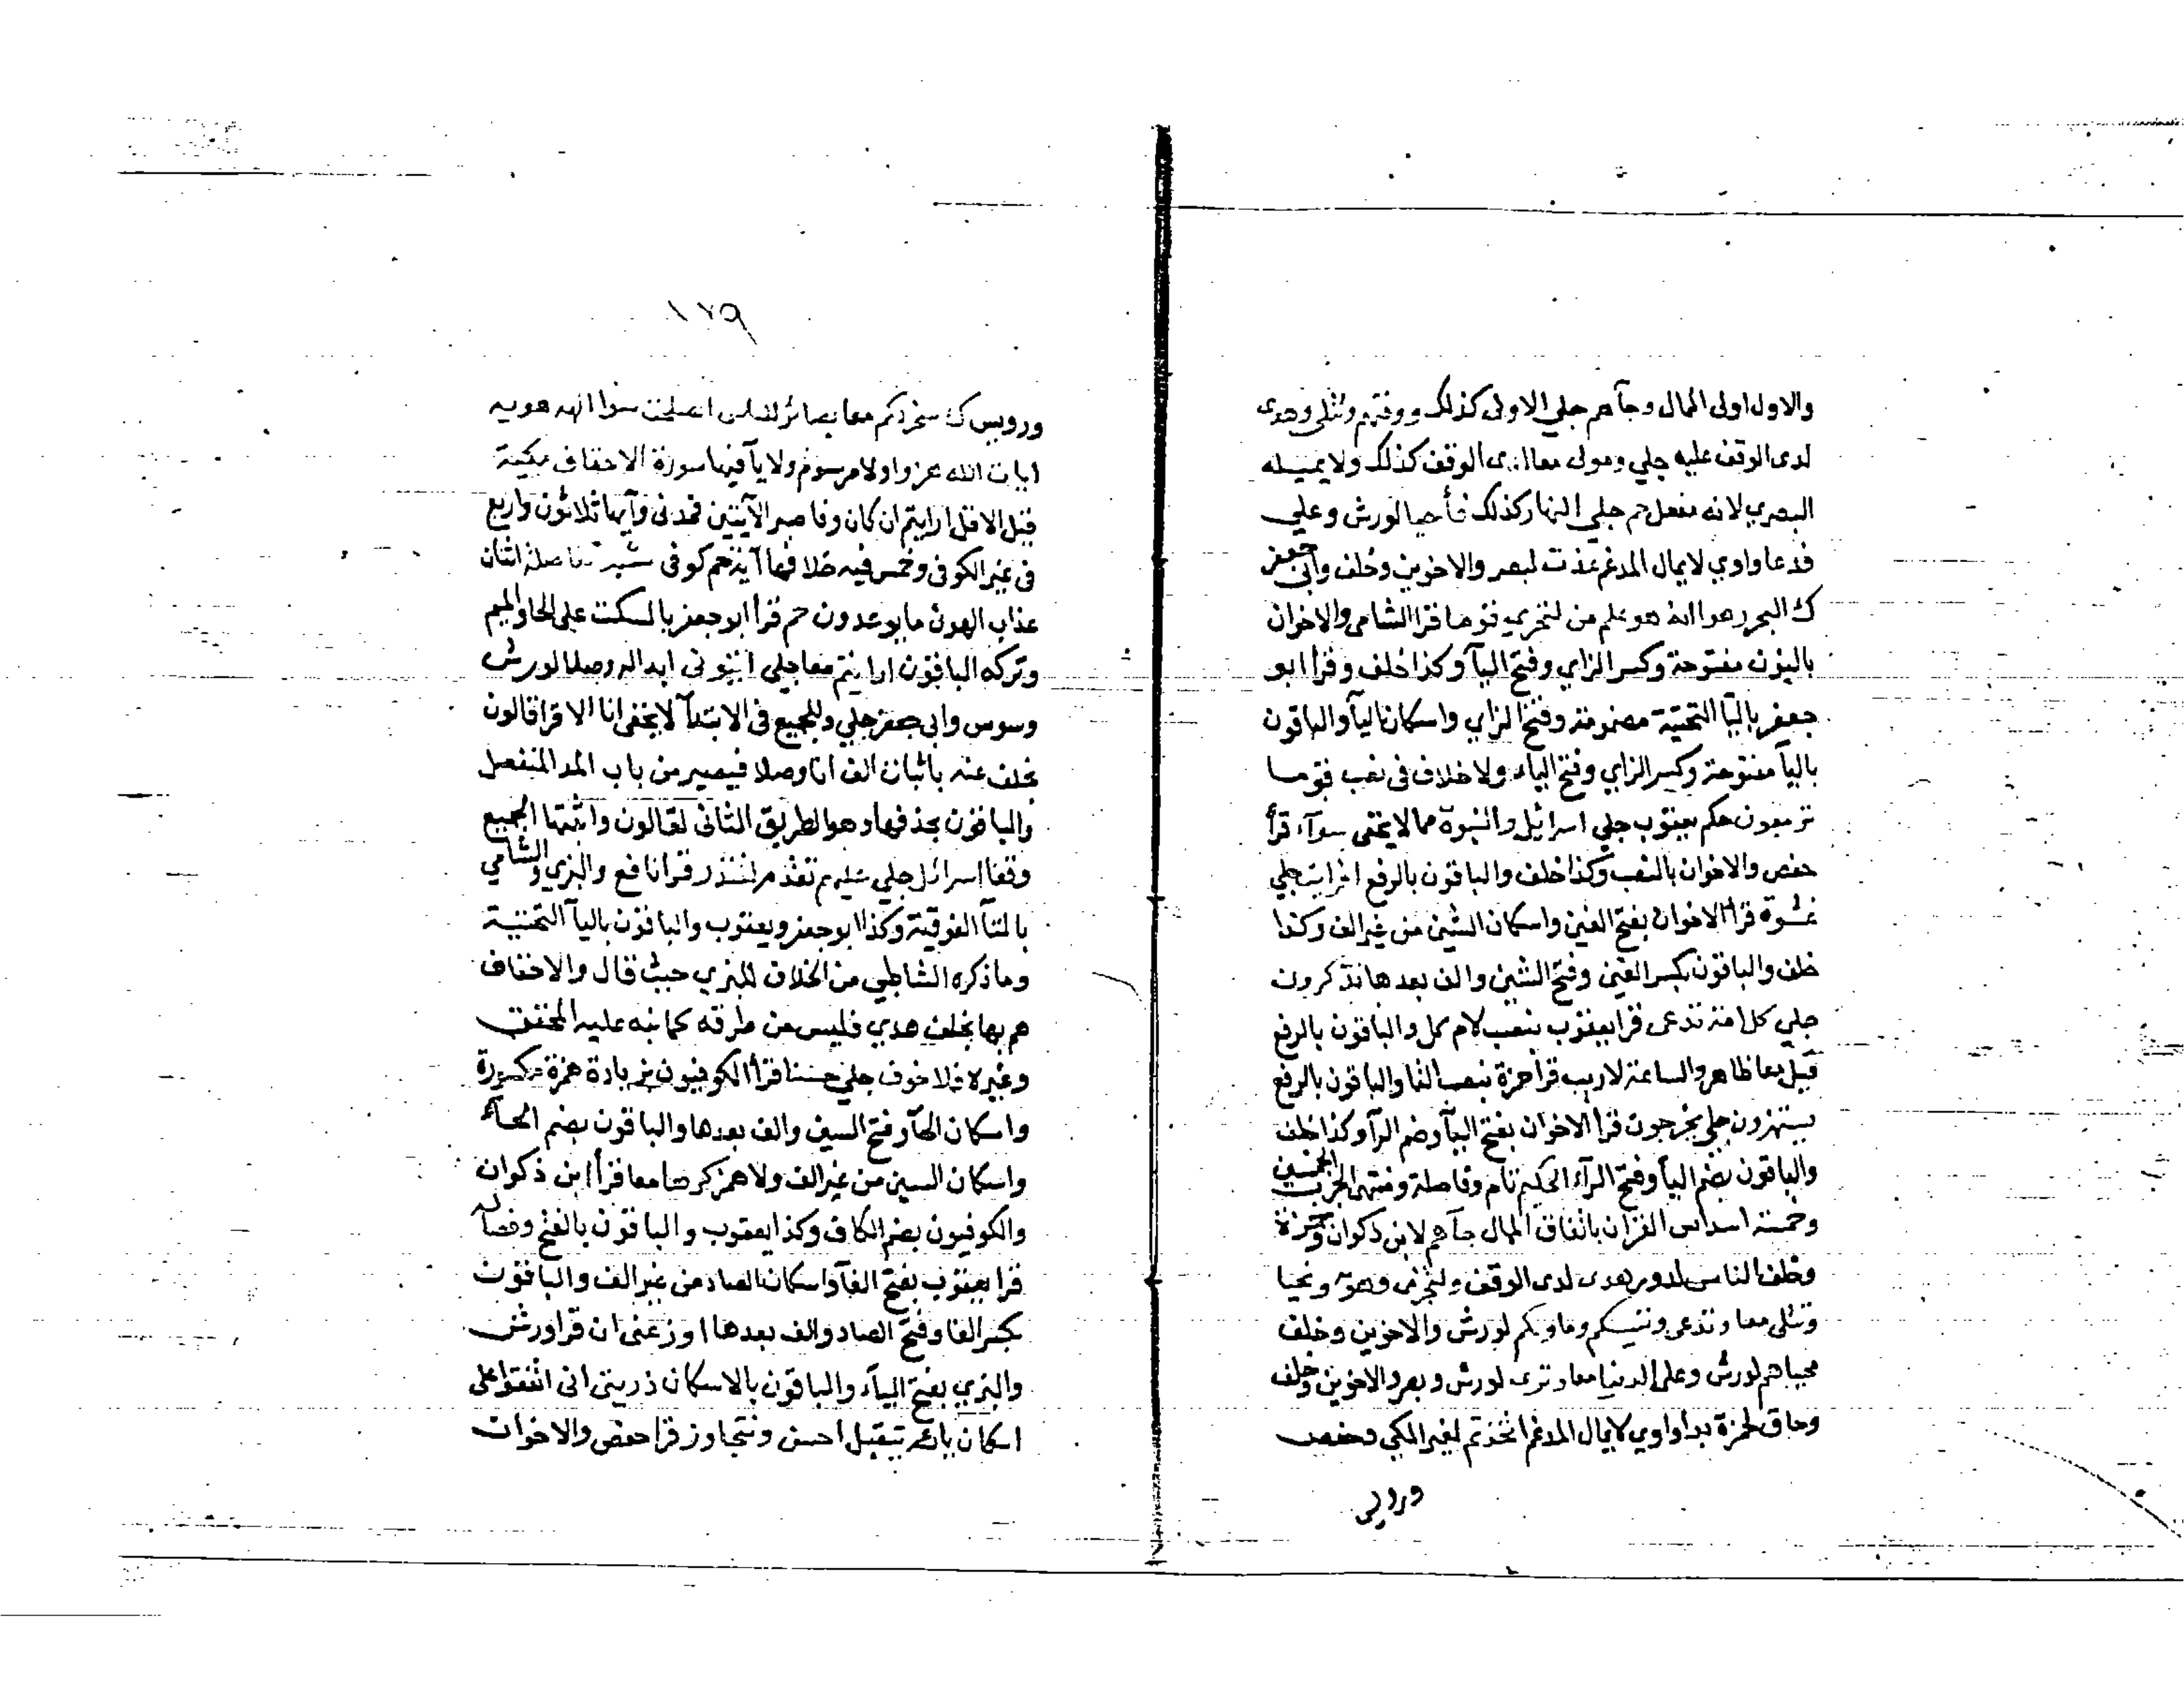 والاول اولى الممال وجآهم جلي الاولى كذلك ووقهم وتتلى وهدى
لدى الوقف عليه جلي ومولى معا لدى الوقف كذلك ولا يميله
البصري لانه مفعل حم جلي النهار كذلك فأحيا لورش وعلي
فدعا واوي لا يمال المدغم عذت لبصر والاخوين وخلف وأبي جعفر
ك البحر رهوا انه هو علم من لنجزي قوما قرا الشامي والاخوان
بالنون مفتوحة وكسر الزاي وفتح اليآ وكذا خلف وقرا ابو
جعفر باليآ التحتية مضمومة وفتح الزاي واسكان اليآ والباقون
باليآ مفتوحة وكسر الزاي وفتح الياء ولا خلاف في نصب قوما
ترجعون حكم يعقوب جلي اسرائيل والنبوة مما لا يخفى سوآء قرأ
حفص والاخوان بالنصب وكذا خلف والباقون بالرفع افرايت جلي
غشوة قرا الاخوان بفتح الغين واسكان الشين من غير الف وكذا
خلف والباقون بكسر الغين وفتح الشين والف بعدها تذكرون
جلي كل امة تدعى قرا يعقوب بنصب لام كل والباقون بالرفع
قيل معا ظاهر والساعة لا ريب قرأ حمزة بنصب التا والباقون بالرفع
يستهزون جلي يخرجون قرا الاخوان بفتح اليآ وضم الرآ وكذا خلف
والباقون بضم اليأ وفتح الرآء الحكيم تام وفاصلة ومنتهى الحزب الخمسين
وخمسة اسداس القران باتفاق الممال جآهم لابن ذكوان وحمزة
وخلف الناس لدور هدى لدى الوقف ولتجزى وهوى ونحيا
وتتلى معا وتدعى وننسيكم وماويكم لورش والاخوين وخلف
محياهم لورش وعلى الدنيا معا وترى لورش وبصر والاخوين وخلف
وحاق لحمزة بدا واوي لا يمال المدغم اتخذتم لغير المكي وحفص
ورويس
١٧٩
ورويس ك سخر لكم معا بصائر للناس الصلحت سوا الهه هويه
ايات الله هزوا ولا مرسوم ولا يآ فيها سورة الاحقاف مكية
قيل الا قل ارايتم ان كان وفاصبر الآيتين فمدني وآيها ثلاثون واربع
في غير الكوفي وخمس فيه خلافها آية حم كوفي فاصلة اثنان
عذاب الهون ما يوعدون حم قرأ ابو جعفر بالسكت على الحا والميم
وتركه الباقون ارايتم معا جلي ائتوني ابداله وصلا لورش
وسوس وابي جعفر جلي وللجميع في الابتدآ لا يخفى انا الا قرا قالون
بخلف عنه باثبات الف انا وصلا فيصير من باب المد المنفصل
والباقون بحذفها وهو الطريق الثاني لقالون واثبتها الجميع
وقفا اسرائل جلي عليهم تقدم لتنذر قرا نافع والبزي والشامي
بالتآ الفوقية وكذا ابو جعفر ويعقوب والباقون باليآ التحتية
وما ذكره الشاطبي من الخلاف للبزي حيث قال والاحقاف
هم بها بخلف هدي فليس من طرقه كما نبه عليه المحقق
وغيره فلا خوف جلي حسنا قرأ الكوفيون بزيادة همزة مكسورة
واسكان الحآ وفتح السين والف بعدها والباقون بضم الحآء
واسكان السين من غير الف ولا همز كرها معا قرأ ابن ذكوان
والكوفيون بضم الكاف وكذا يعقوب والباقون بالفتح وفصاله
قرا يعقوب بفتح الفآ واسكان الصاد من غير الف والباقون
بكسر الفا وفتح الصاد والف بعدها اوزعني ان قرا ورش
والبزي بفتح اليآء والباقون بالاسكان ذريتي اني اتفقوا على
اسكان يائه يتقبل احسن ونتجاوز قرا حفص والاخوان